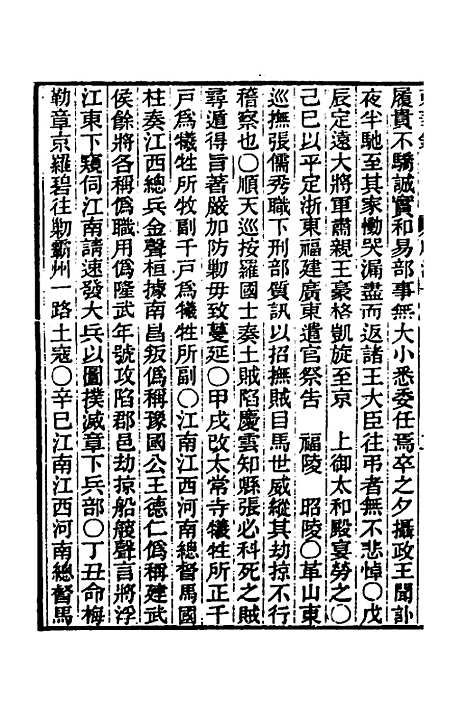 履貴不驕誠實和易部事無大小悉委任焉卒之夕攝政王聞訃
夜半馳至其家慟哭漏盡而返諸王大臣往弔者無不悲悼○戊
辰定遠大將軍肅親王豪格凱旋至京　上御太和殿宴勞之○
己巳以平定浙東福建廣東遣官祭告　福陵　昭陵○革山東
巡撫張儒秀職下刑部質訊以招撫賊目馬世威縱其劫掠不行
稽察也○順天巡按羅國士奏土賊陷慶雲知縣張必科死之賊
尋遁得旨著嚴加防勦毋致蔓延○甲戌改太常寺犧牲所正千
戸爲犧牲所牧副千戸爲犧牲所副○江南江西河南總督馬國
柱奏江西總兵金聲桓據南昌叛僞稱豫國公王德仁僞稱建武
侯餘將各稱僞職用僞隆武年號攻陷郡邑劫掠船艘聲言將浮
江東下窺伺江南請速發大兵以圖撲滅章下兵部○丁丑命梅
勒章京羅碧往勦霸州一路土寇○辛巳江南江西河南總督馬